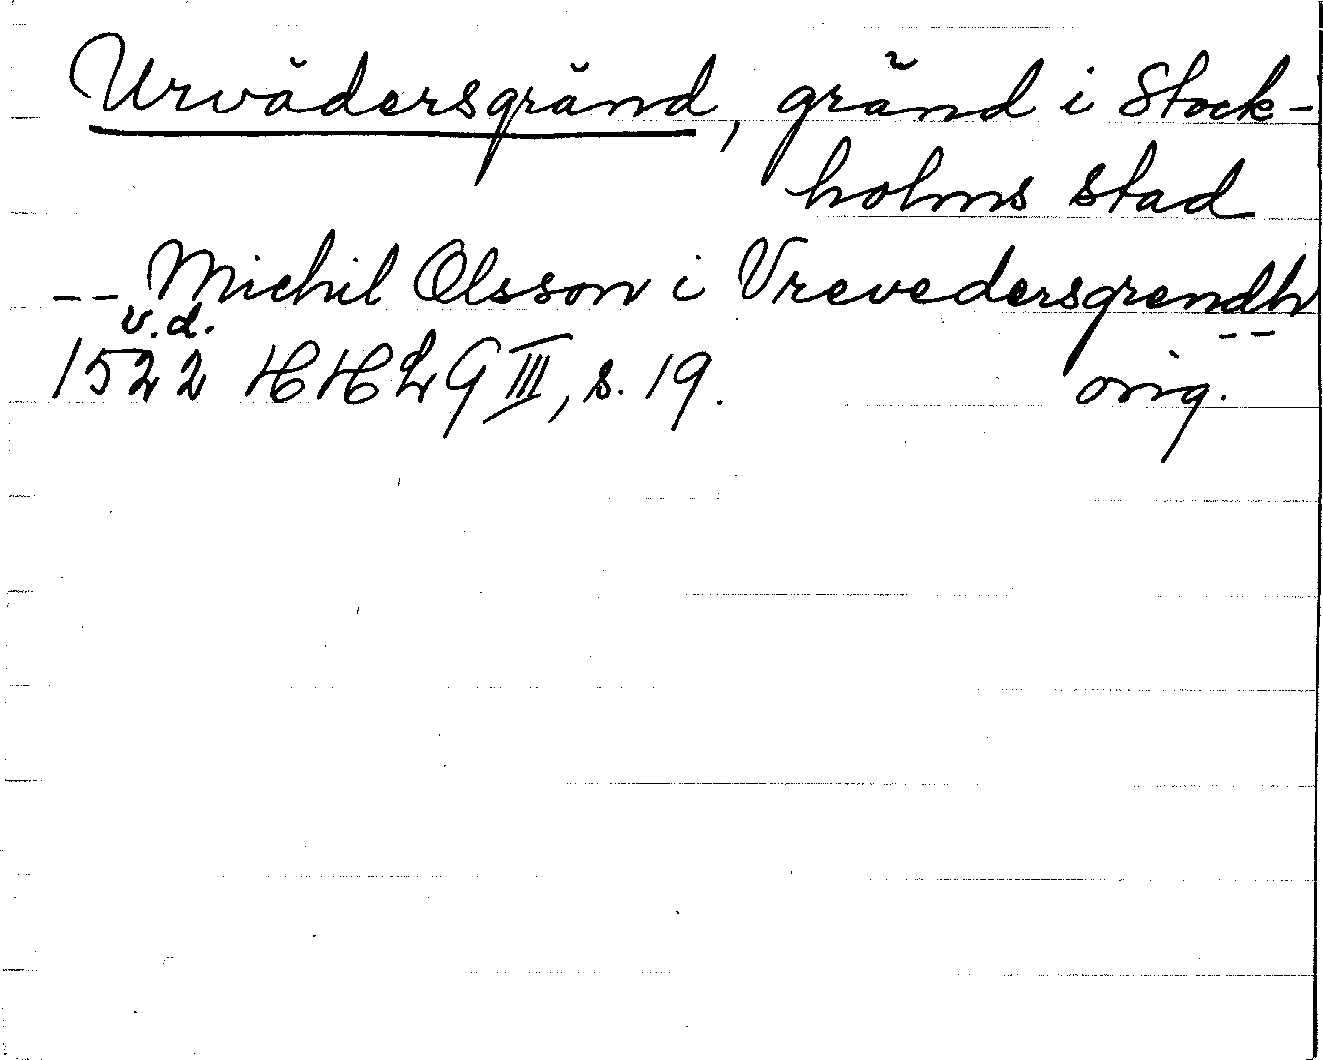 Urvädersgränd, gränd i Stock-
holms stad
-- Michil Olsson i Vrevedersgrendh
v.d. --
1522 HHLG III, s. 19. orig.